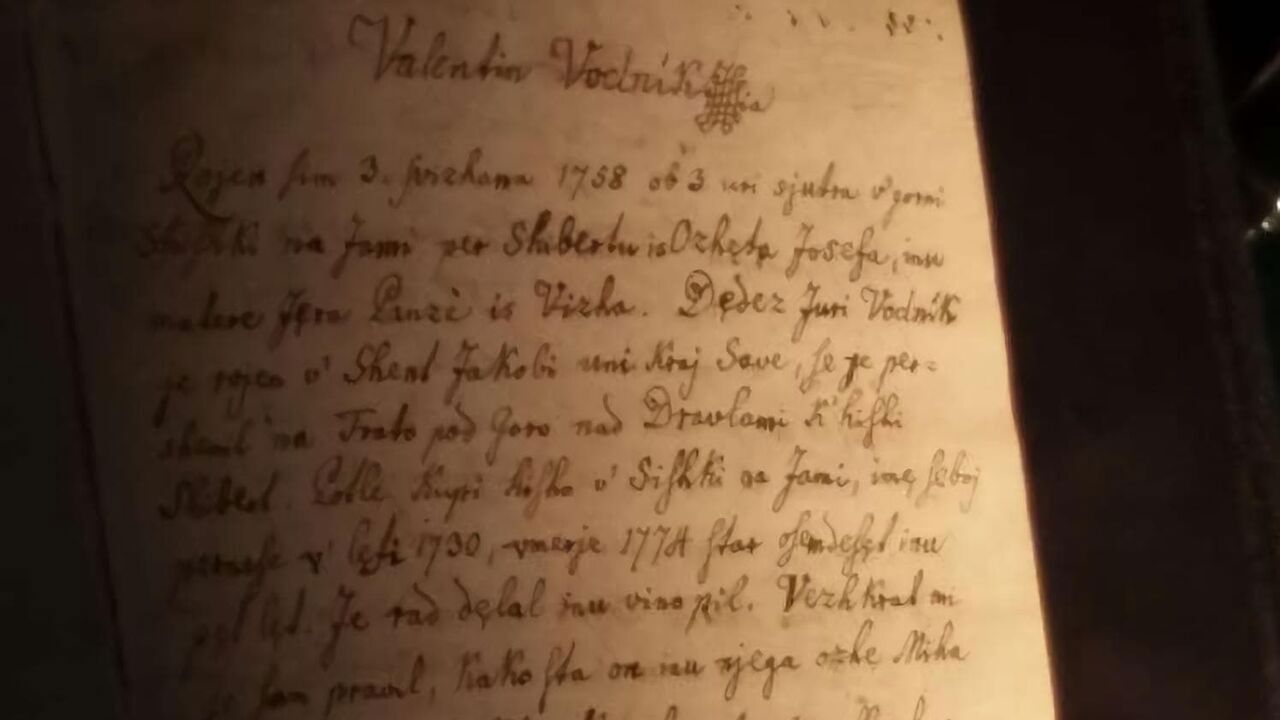 Valentin Vodnik
Rojen sim 3. svizhana 1758 ob 3 uri sjutra v' gorni
Shishki na Jami per Shibertu is Ozhęta Josefa, inu
matere Jęra Panzè is Vizha. Dędez Juri Vodnik
je rojen v' Shent Jakobi uni kraj Save, se je per-
shenil na Trato pod Goro nad Dravlami k' hishi
Shibert. Potlę kupi hisho v' Sishki na Jami, imę seboj
pernese v' lęti 1730, vmerje 1774 star osemdesęt inu
pęt lęt. Je rad dęlal inu vino pil. Vezhkrat mi
je sam pravil, kako sta on inu njega ozhe Miha